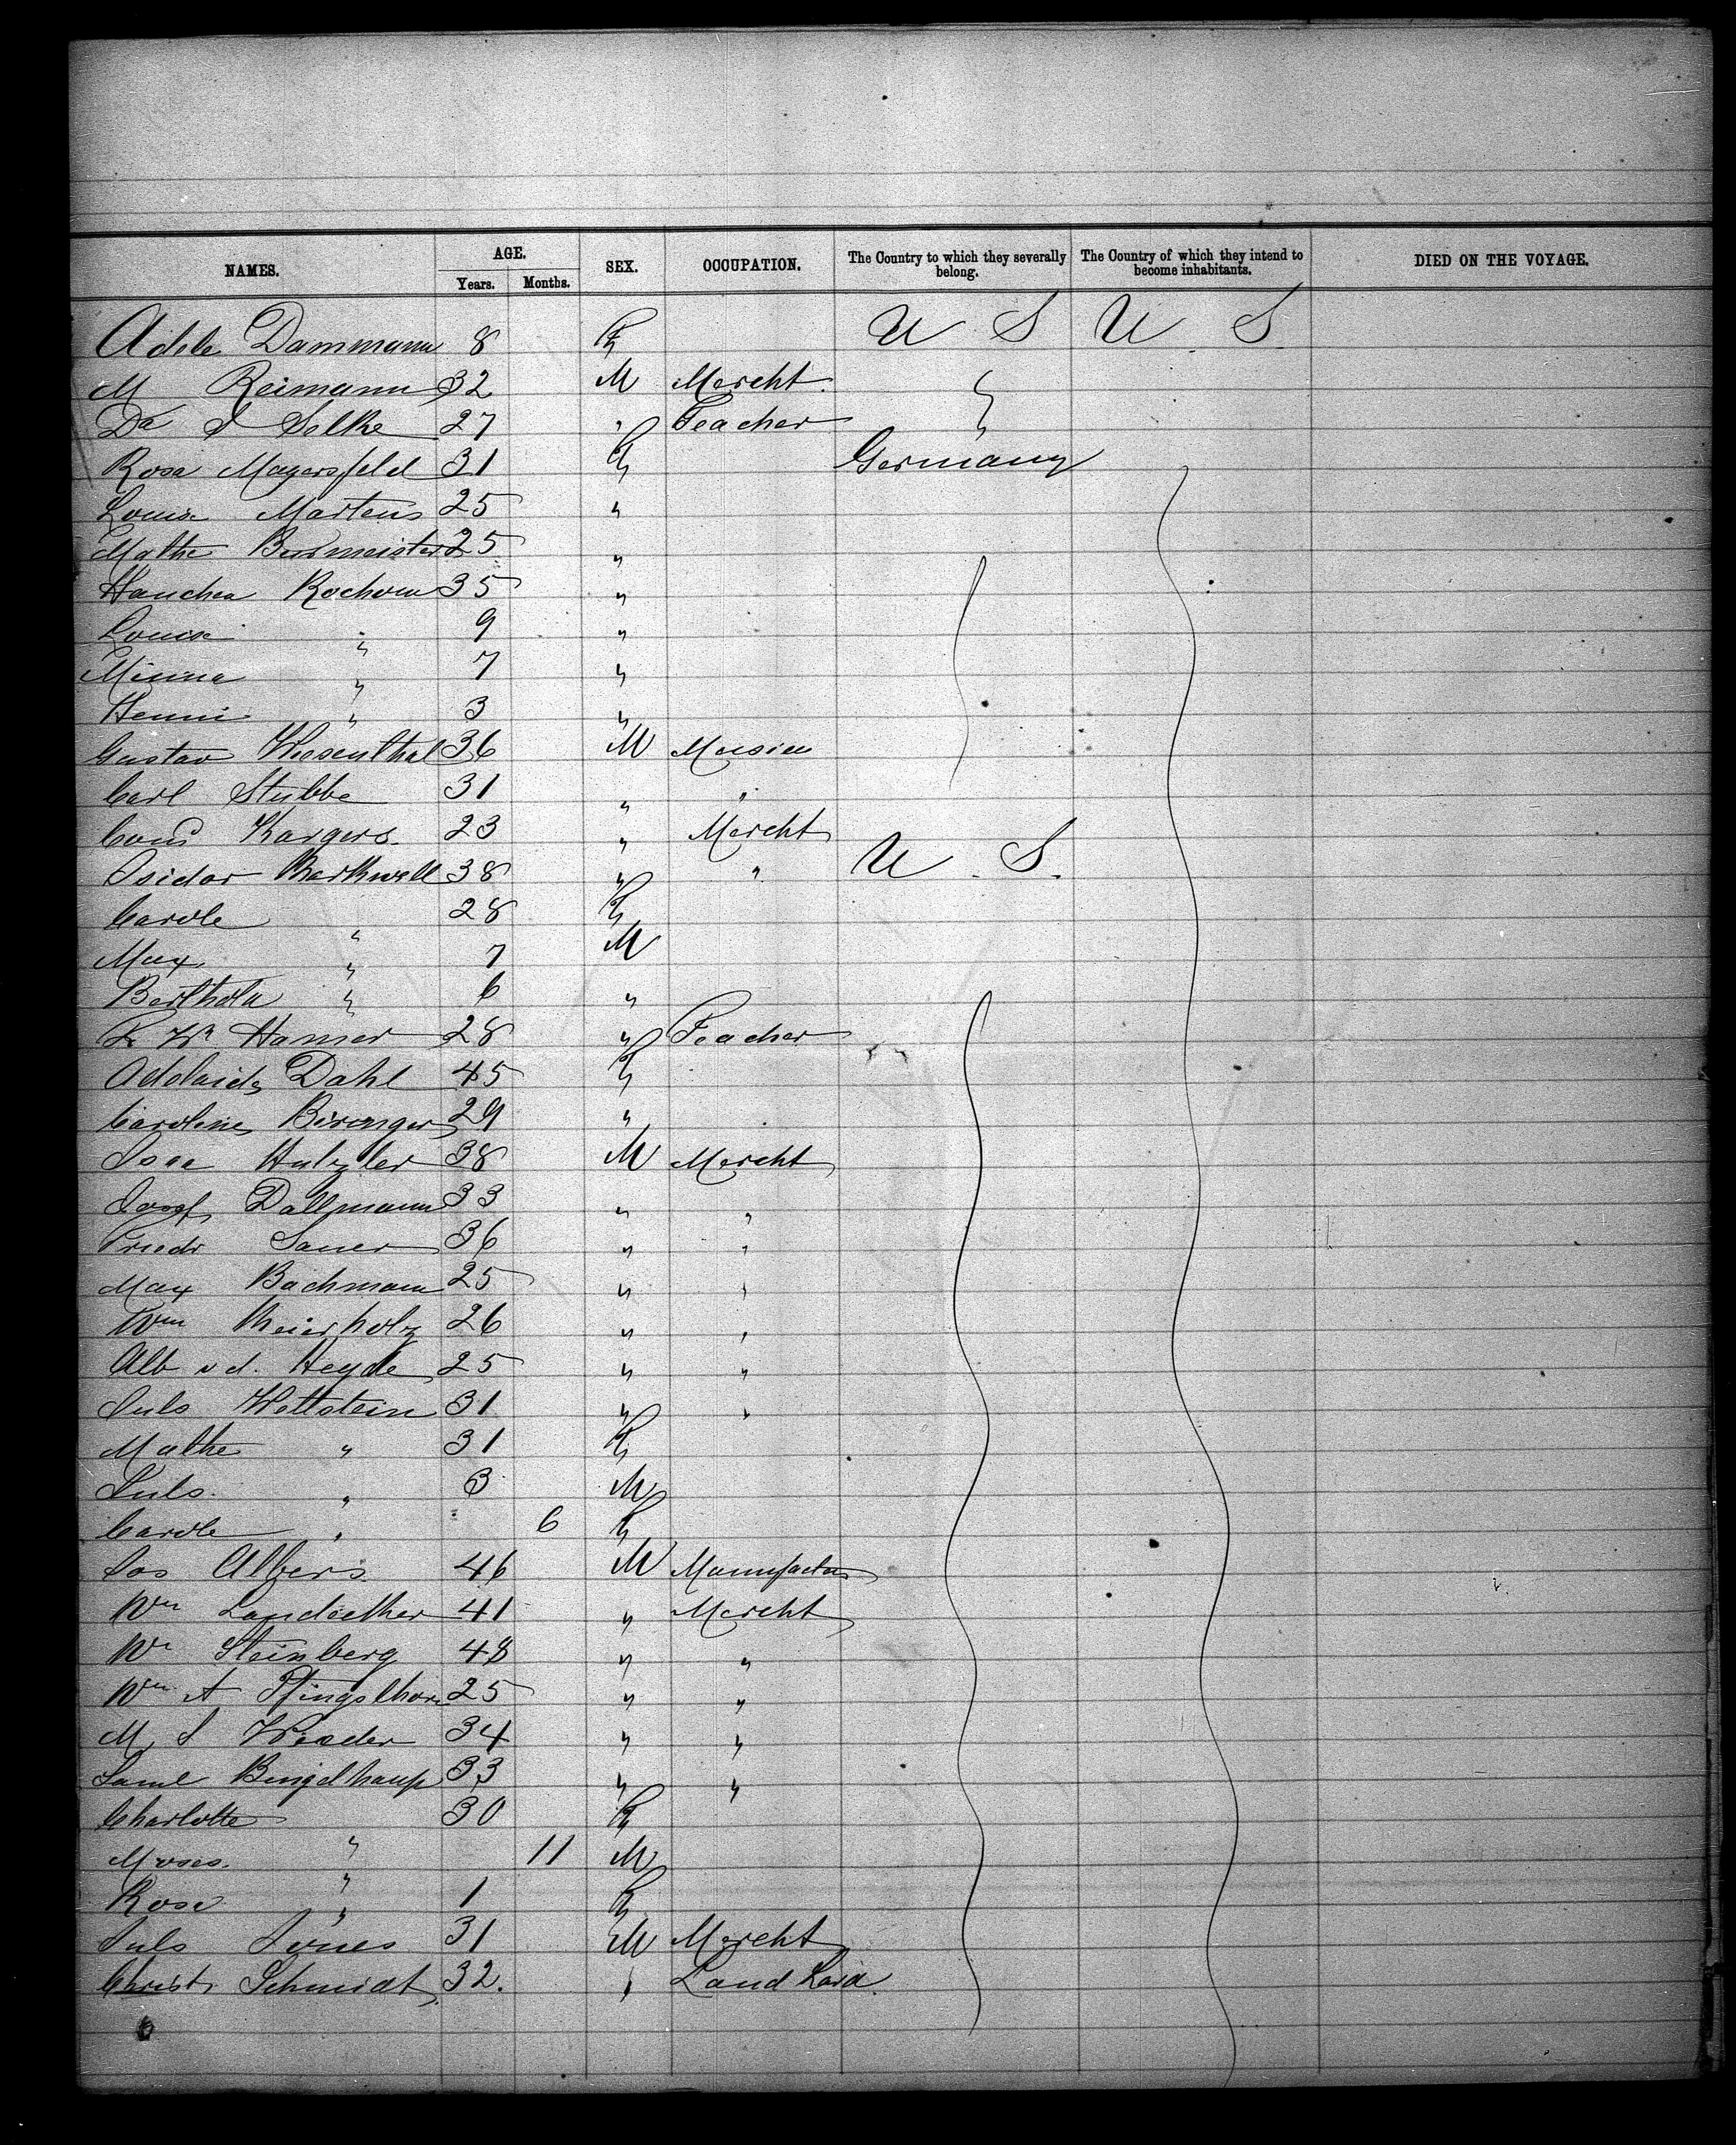 NAMES. AGE. SEX. OCCUPATION. The Country to which they severally belong. The Country of which they intend to become inhabitants. DIED ON THE VOYAGE.
Years. Months.
Adele Dammann 8 F U S U S
M Reimann 32 M Mercht
Da S Selke 27 " Teacher
Rosa Mayersfeld 31 F Germany
Louise Martens 25 "
Mathe Burmeister 25 "
Hanchen Rochow 35 "
Louise " 9 "
Minna " 7 "
Henni " 3 "
Gustav Wiesenthal 36 M Musicn
Carl Stubbe 31 " "
Kargers 23 " Mercht
Isidor 38 " " U S.
Carole " 28 F
Max " 7 M
Berthold " 6 "
Hamer 28 " Teacher
Adelaide Dahl 45 F
Caroline Biringer 29 "
Isaac Hutzler 38 M Mercht
Josef Dallmann 33 " "
Friedr Sauer 36 " "
Max Bachmann 25 " "
Wm Meierholz 26 " "
Alb v d. Heyde 25 " "
Juls Wettstein 31 " "
Mathe " 31 F
Juls. " 3 M
Carole " 6 F
Jos Albers 46 M Manufactur
Wm 41 " Mercht
Wm Steinberg 48 " "
Wm A Pfingsthorn 25 " "
M S 34 " "
Saml 33 " "
Charlotte " 30 F
Moses. " 11 M
Rosa " 1 F
Juls Jones 31 M Mercht
Christ Schmidt 32. " Land Lord